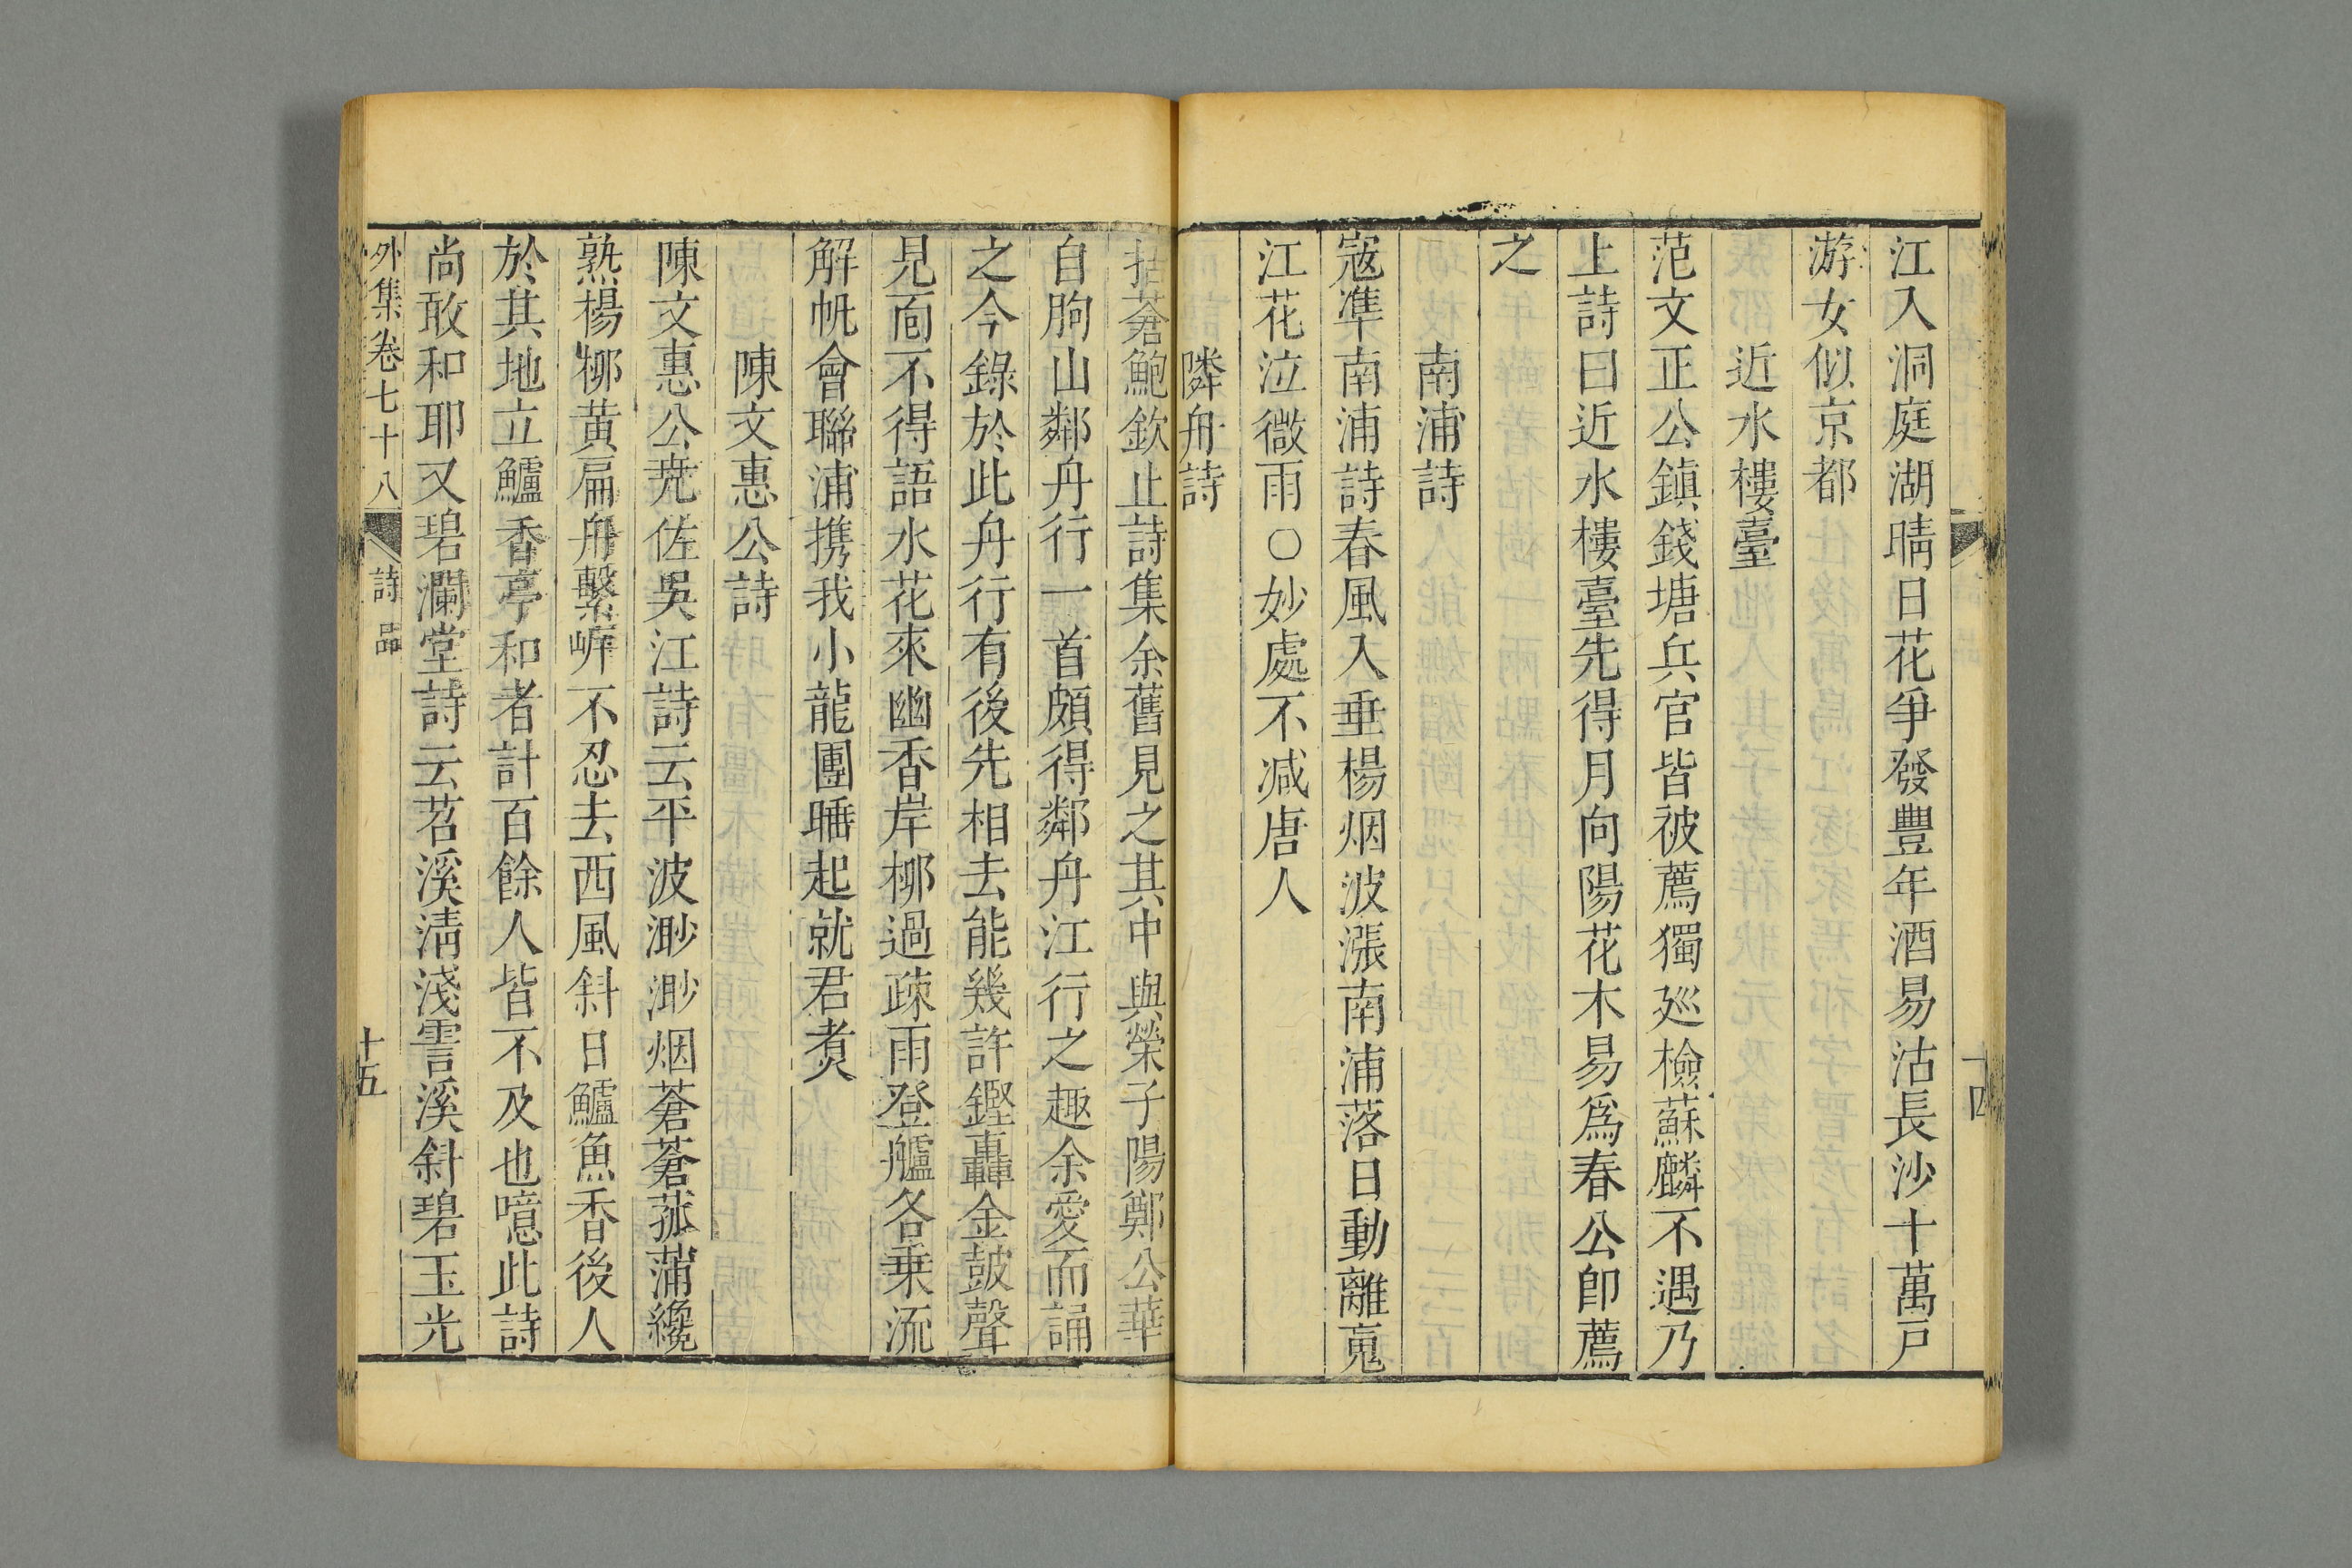 江入洞庭湖晴日花爭發豐年酒易沽長沙十萬戸
游女似京都
近水樓臺
范文正公鎮錢塘兵官皆被薦獨廵檢蘇麟不遇乃
上詩曰近水樓臺先得月向陽花木易爲春公卽薦
之
南浦詩
寇準南浦詩春風入垂楊烟波漲南浦落日動離䰟
江花泣微雨○妙處不减唐人
隣舟詩
括蒼鮑欽止詩集余舊見之其中與榮子陽鄭公華
自朐山鄰舟行一首頗得鄰舟江行之趣余愛而誦
之今錄於此舟行有後先相去能幾許鏗轟金皷聲
見面不得語水花來幽香岸柳過疎雨登艫各乗流
解帆會聯浦携我小龍團睡起就君煑
陳文惠公詩
陳文惠公尭佐吳江詩云平波渺渺烟蒼蒼菰蒲纔
熟楊柳黄扁舟繫㟁不忍去西風斜日鱸魚香後人
於其地立鱸香亭和者計百餘人皆不及也噫此詩
尚敢和耶又碧瀾堂詩云苕溪淸淺霅溪斜碧玉光
外集卷七十八
詩品
十五
十四